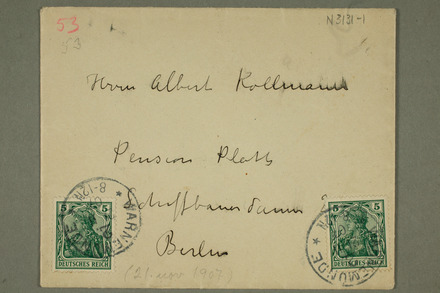 53
53
N3131-1
Herrn Albert Kollmann
Pension Plath
Schiffbauerdamm
Berlin
5 5
DEUTSCHES REICH
8-12
* WARNE
5 5
DEUTSCHES REICH
MÜNDE *
(21. nov 1907)